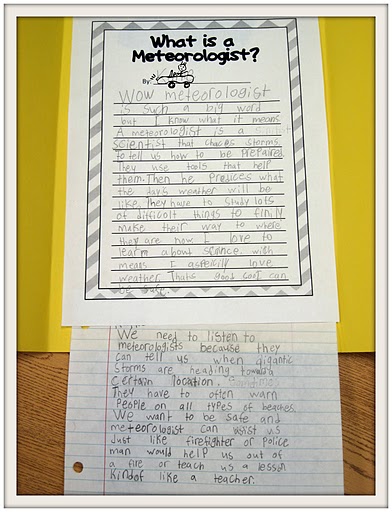 What is a
Meteorologist?
By:
Wow meteorologist
is such a big word
but I know what it means
A meteorologist is a
scientist that chaces storms
to tell us how to be prepaired
They use tools that help
them. Then he predices what
the day's weather will be
like. They have to study lots
of difficult things to finily
make their way to where
they are now. I love to
learn about science wich
means I aspeically love
weather. Thats good soot can
be safe.
We need to listen to
meteorologists because they
can tell us when gigantic
storms are heading toward
certain location. Sometimes
They have to often warn
people on all types of beaches.
We want to be safe and
meteorologist can assist us
Just like firefighter or police
man would help us out of
a fire or teach us a lesson
kindof like a teacher.